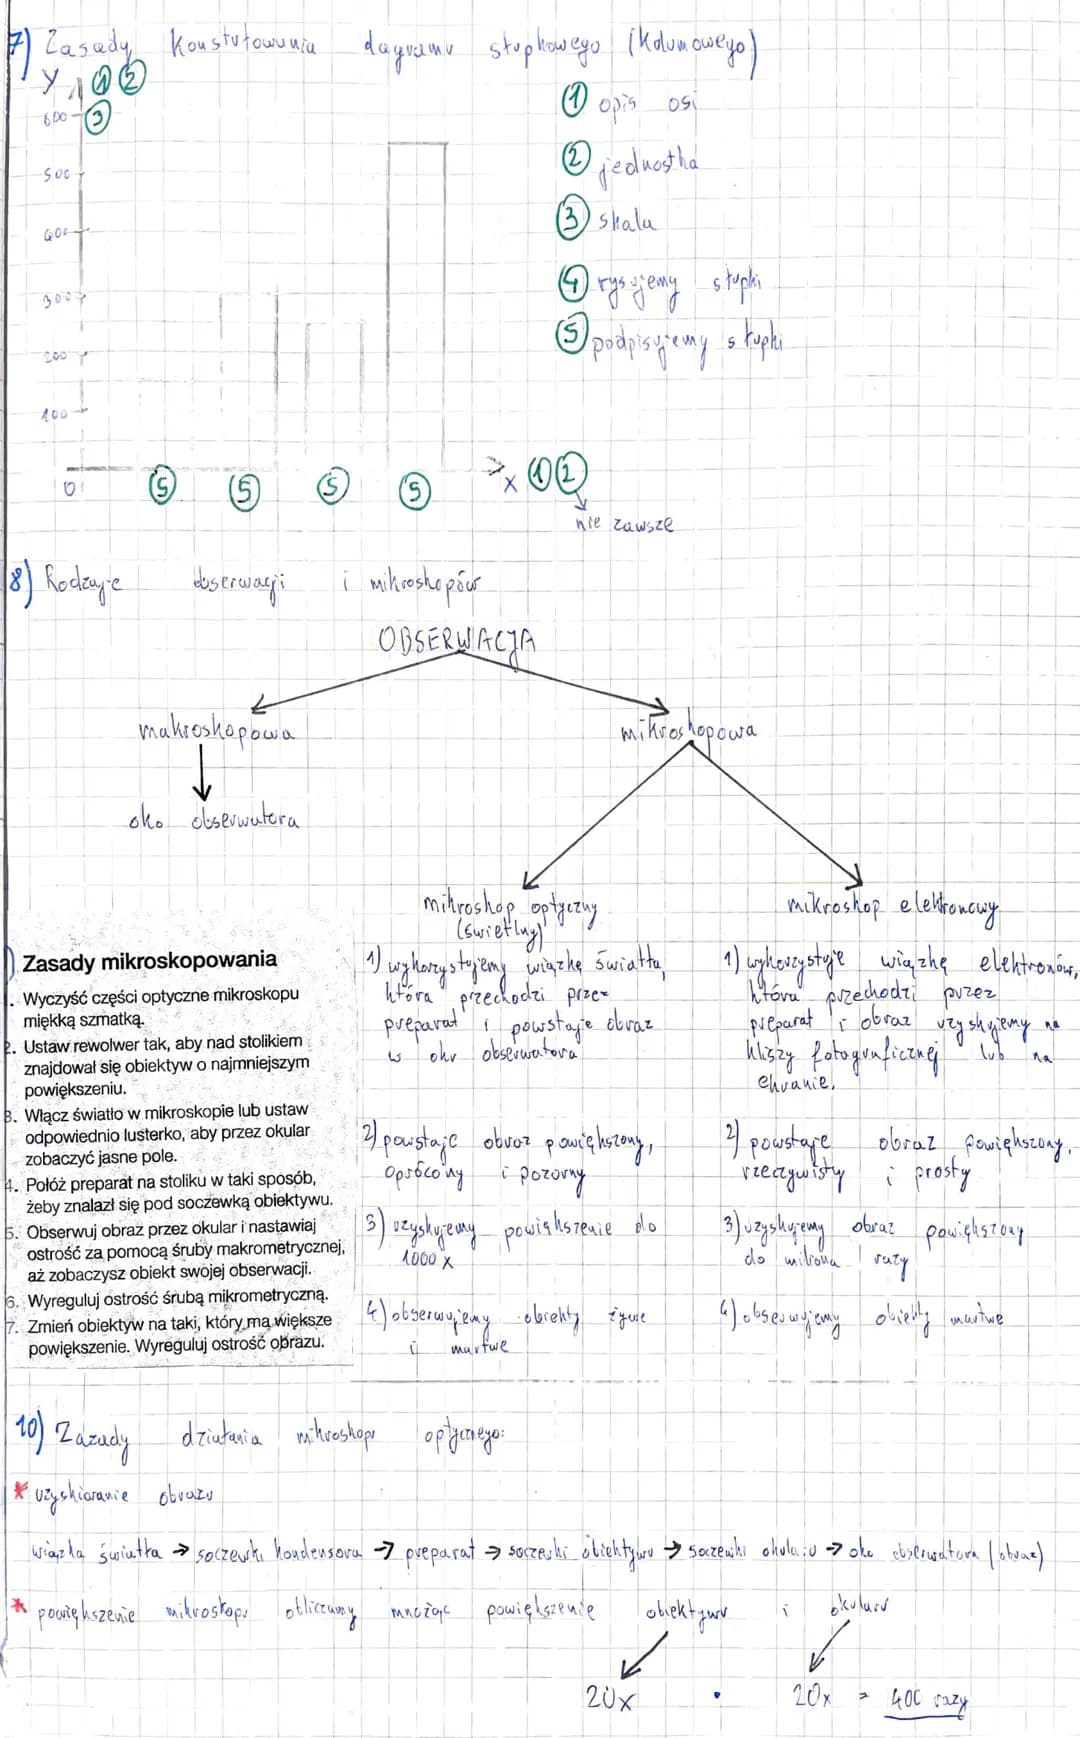 7) Zasady konstutowania diagramu słupkowego (kolumowego)
Y ① ②
600 ③
500
400
300
200
100
0
① opis osi
② jednostka
③ skala
④ rysujemy słupki
⑤ podpisujemy słupki
⑤ ⑤ ⑤ ⑤ x ① ②
nie zawsze
8) Rodzaje obserwacji i mikroskopów
OBSERWACJA
makroskopowa
mikroskopowa
oko obserwatora
mikroskop optyczny
(świetlny)
1) wykorzystujemy wiązkę światła,
która przechodzi przez
preparat i powstaje obraz
w oku obserwatora
2) powstaje obraz powiększony,
oprócony i pozorny
3) uzyskujemy powiększenie do
1000 x
4) obserwujemy obiekty żywe
i martwe
mikroskop elektronowy
1) wykorzystuje wiązkę elektronów,
która przechodzi przez
preparat i obraz uzyskujemy na
kliszy fotograficznej lub na
ekranie.
2) powstaje obraz powiększony,
rzeczywisty i prosty
3) uzyskujemy obraz powiększony
do miliona razy
4) obserwujemy obiekty martwe
) Zasady mikroskopowania
. Wyczyść części optyczne mikroskopu
miękką szmatką.
2. Ustaw rewolwer tak, aby nad stolikiem
znajdował się obiektyw o najmniejszym
powiększeniu.
3. Włącz światło w mikroskopie lub ustaw
odpowiednio lusterko, aby przez okular
zobaczyć jasne pole.
4. Połóż preparat na stoliku w taki sposób,
żeby znalazł się pod soczewką obiektywu.
5. Obserwuj obraz przez okular i nastawiaj
ostrość za pomocą śruby makrometrycznej,
aż zobaczysz obiekt swojej obserwacji.
6. Wyreguluj ostrość śrubą mikrometryczną.
7. Zmień obiektyw na taki, który ma większe
powiększenie. Wyreguluj ostrość obrazu.
10) Zazady działania mikroskopu optycznego:
* uzyskiwanie obrazu
wiązka światła → soczewki kondensora → preparat → soczewki obiektywu → soczewki okularu → oko obserwatora (obraz)
* powiększenie mikroskopu obliczamy mnożąc powiększenie obiektywu i okularu
20x · 20x = 400 razy